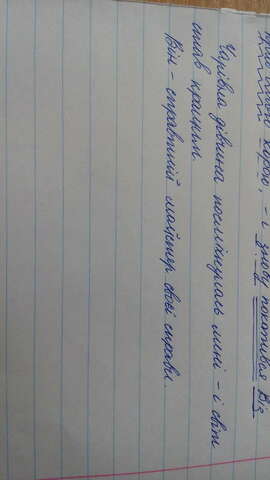 короп, - і знову покотився віз.
Чарівна дівчина посміхнулась мині - і світ
став кращим.
Він - справтній майстер своєї справи.